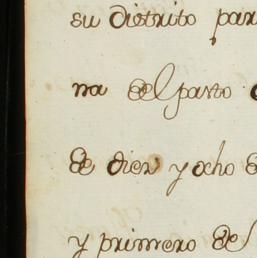 su distrito par
na del parto
de diez y ocho
y primero de